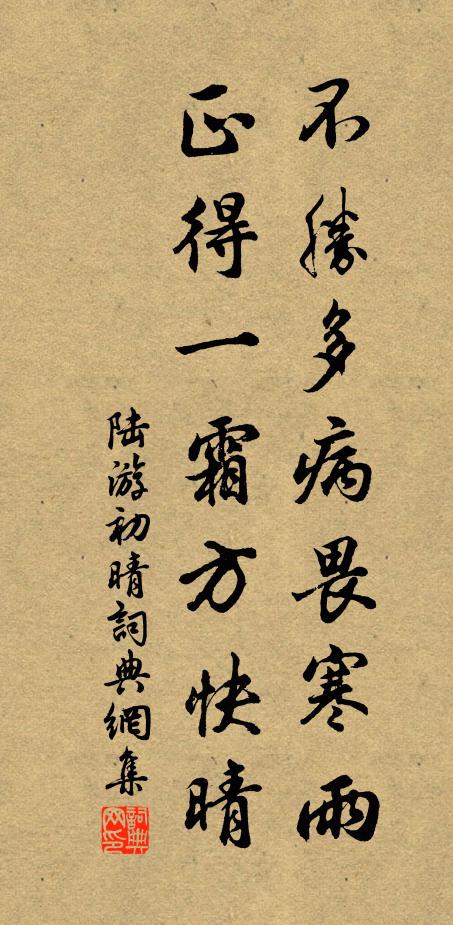 不勝多病畏寒雨
正得一霜方快晴
陆游初晴詞典網集
詞典网印